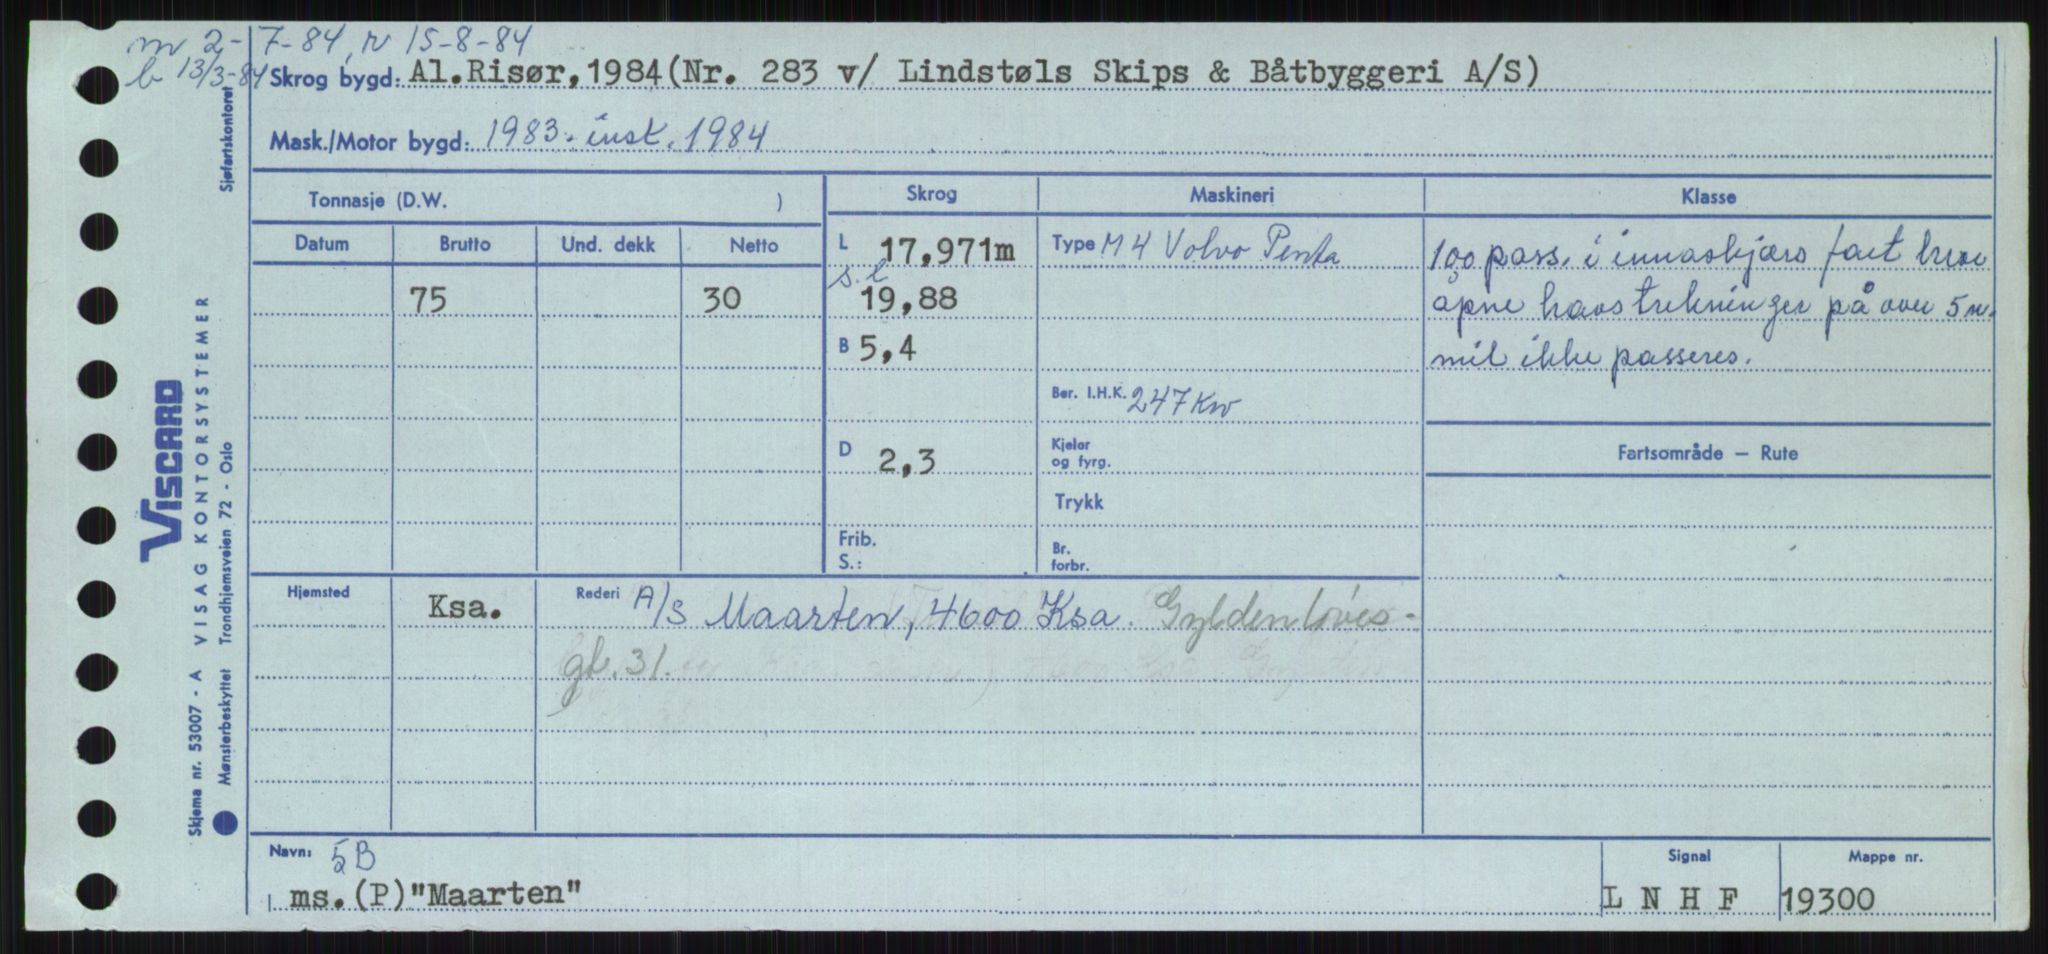 m 2-7-84, r 15-8-84
b 13/3-84
Skrog bygd: Al.Risør,1984(Nr. 283 v/ Lindstøls Skips & Båtbyggeri A/S)
Mask./Motor bygd: 1983. inst. 1984
Tonnasje (D.W. )
Skrog
Maskineri
Klasse
Datum Brutto Und. dekk Netto
75 30
L 17,971m
s.l
19,88
B 5,4
D 2,3
Frib.
S.:
Type M4 Volvo Penta
Ber. I.H.K. 247 Kw
Kjeler
og fyrg.
Trykk
Br.
forbr.
100 pass. i innaskjærs fart hvor
åpne havstrekninger på over 5 n.
mil ikke passeres.
Fartsområde — Rute
Hjemsted Ksa.
Rederi A/S Maarten, 4600 Ksa. Gyldenløves-
gt. 31.
Navn: 5B
ms.(P)"Maarten"
Signal
L N H F
Mappe nr.
19300
Sjøfartskontoret
VISCARD
VISAG KONTORSYSTEMER
Trondhjemsveien 72 - Oslo
Skjema nr. 53007 - A
Mønsterbeskyttet